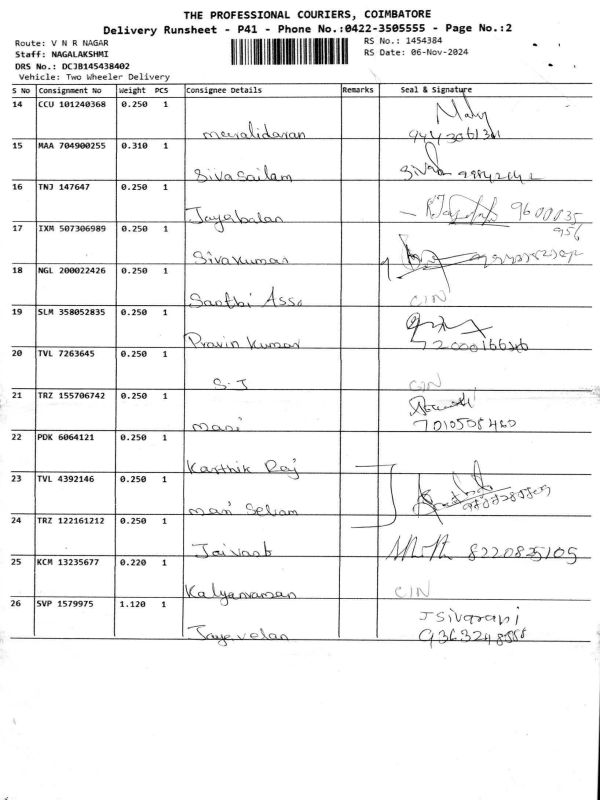 THE PROFESSIONAL COURIERS, COIMBATORE
Delivery Runsheet - P41 - Phone No.:0422-3505555 - Page No.:2
Route: V N R NAGAR RS No.: 1454384
Staff: NAGALAKSHMI RS Date: 06-Nov-2024
DRS No.: DCJB145438402
Vehicle: Two Wheeler Delivery
S No Consignment No Weight PCS Consignee Details Remarks Seal & Signature
14 CCU 101240368 0.250 1
meeralidaran
15 MAA 704900255 0.310 1
Sivasailam
16 TNJ 147647 0.250 1
Jayabalan 9600035
956
17 IXM 507306989 0.250 1
Sivakumar
18 NGL 200022426 0.250 1
Santhi Asso CIN
19 SLM 358052835 0.250 1
Pravin Kumar
20 TVL 7263645 0.250 1
S.J CIN
21 TRZ 155706742 0.250 1
mani
22 PDK 6064121 0.250 1
Karthik Raj
23 TVL 4392146 0.250 1
mari Selvam
24 TRZ 122161212 0.250 1
Jaivasb 8220825105
25 KCM 13235677 0.220 1
Kalyanraman CIN
26 SVP 1579975 1.120 1
J sivarani
Jayavelan